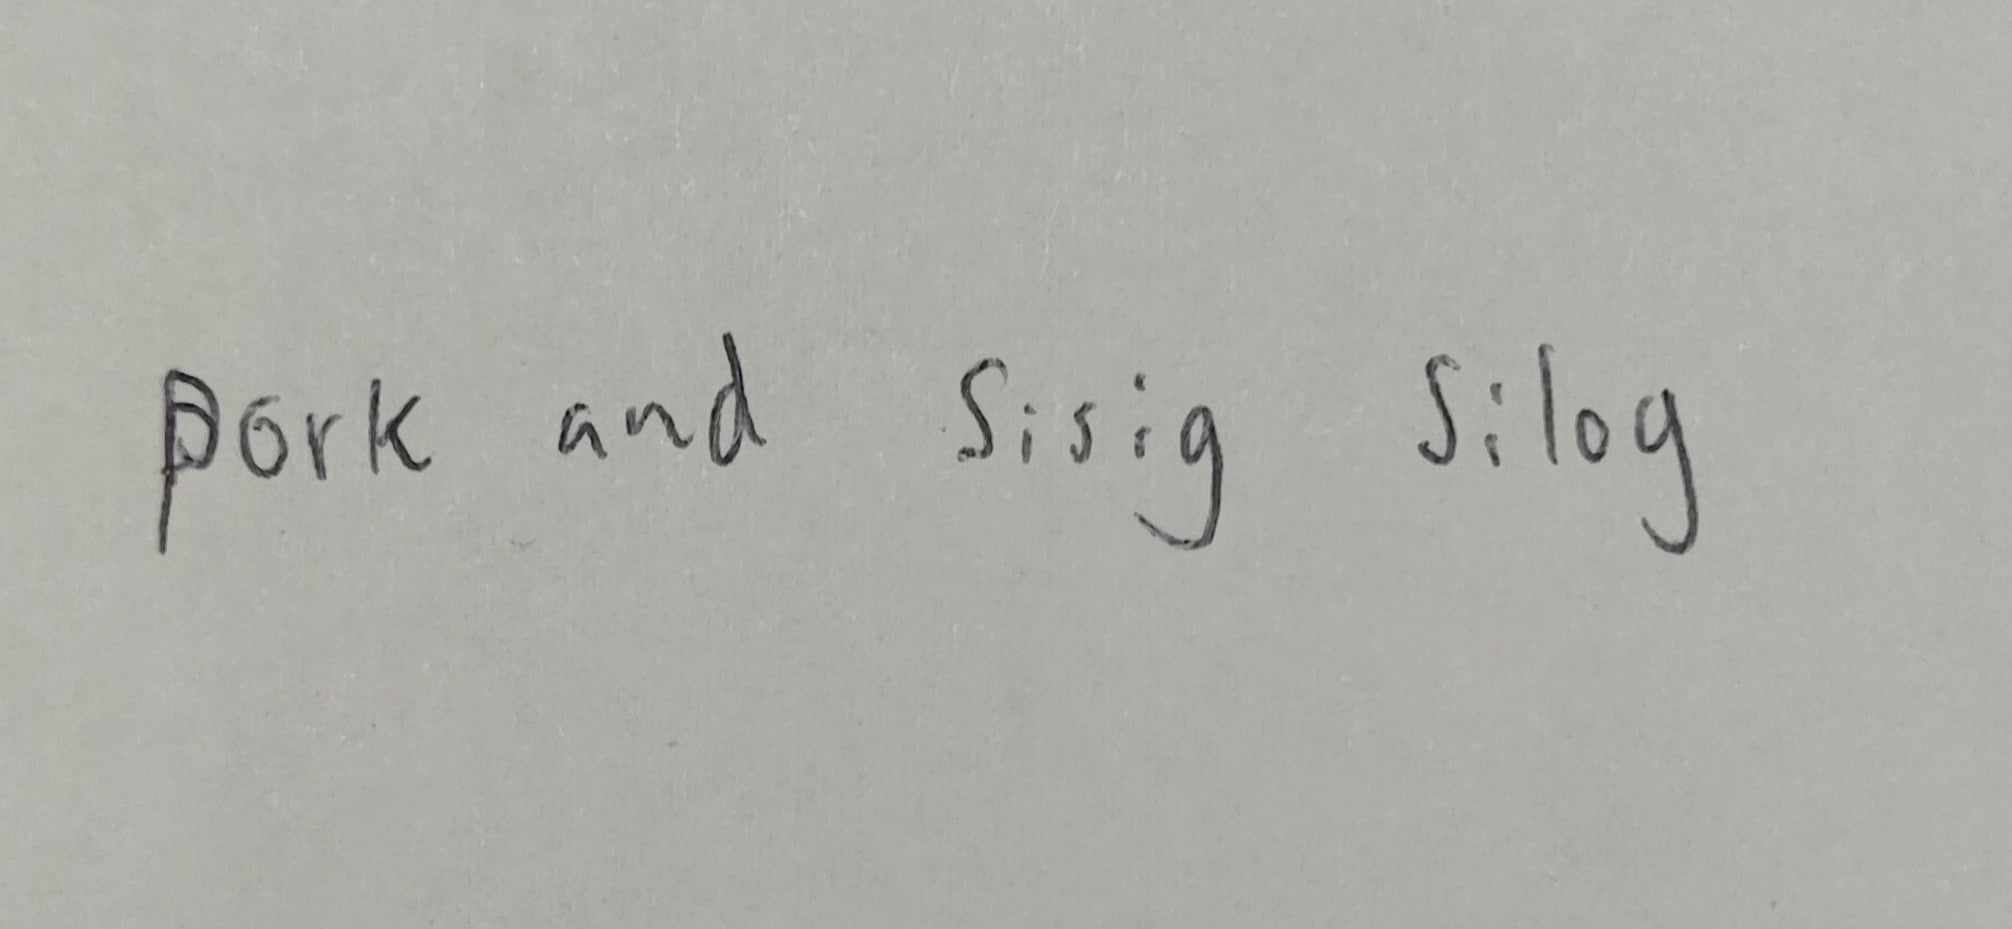 Pork and Sisig Silog